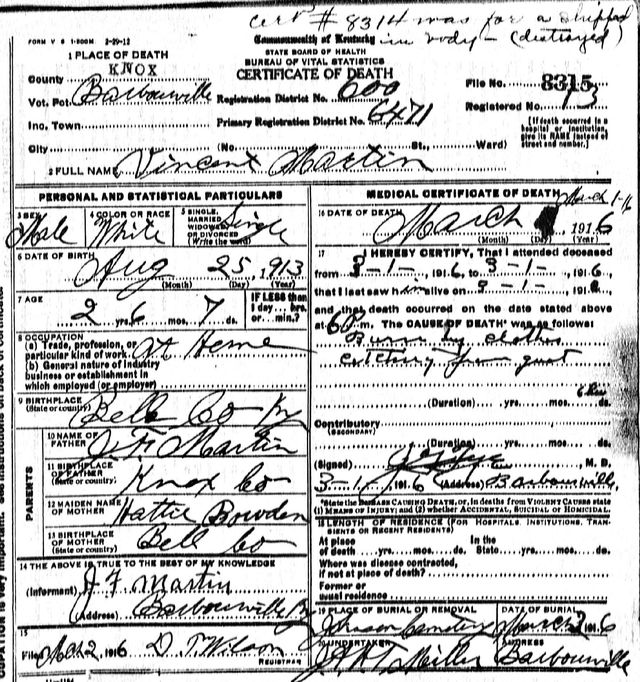 Cert # 8314 was for a shipped
in body - (destroyed)
FORM V S 1-500M 2-29-12
Commonwealth of Kentucky
STATE BOARD OF HEALTH
BUREAU OF VITAL STATISTICS
CERTIFICATE OF DEATH
1 PLACE OF DEATH
County KNOX
File No. 8315
Vot. Pct. Barbourville Registration District No. 600
Registered No. 13
Inc. Town Primary Registration District No. 6471
[If death occurred in a hospital or institution, give its NAME instead of street and number.]
City (No. St., Ward)
2 FULL NAME Vincent Martin
PERSONAL AND STATISTICAL PARTICULARS
3 SEX Male
4 COLOR OR RACE White
5 SINGLE, MARRIED, WIDOWED, OR DIVORCED (Write the word) Single
6 DATE OF BIRTH Aug 25, 1913
(Month) (Day) (Year)
7 AGE 2 yrs. 6 mos. 7 ds.
IF LESS than 1 day... hrs. or... min.?
8 OCCUPATION
(a) Trade, profession, or particular kind of work At Home
(b) General nature of industry business or establishment in which employed (or employer)
9 BIRTHPLACE (State or country) Bell Co Ky
PARENTS
10 NAME OF FATHER J F Martin
11 BIRTHPLACE OF FATHER (State or country) Knox Co
12 MAIDEN NAME OF MOTHER Hattie Bowden
13 BIRTHPLACE OF MOTHER (State or country) Bell Co
14 THE ABOVE IS TRUE TO THE BEST OF MY KNOWLEDGE
(Informant) J F Martin
(Address) Barbourville Ky
15
Filed Mch 2, 1916 D. T. Wilson
REGISTRAR
MEDICAL CERTIFICATE OF DEATH
March 1-16
16 DATE OF DEATH March 1, 1916
(Month) (Day) (Year)
17 I HEREBY CERTIFY, That I attended deceased
from 3-1-, 1916, to 3-1-, 1916,
that I last saw him alive on 3-1-, 191
and that death occurred on the date stated above
at 6 P m. The CAUSE OF DEATH was as follows:
Burn by clothes
catching from grate
6 hrs
(Duration) yrs. mos. ds.
Contributory
(SECONDARY)
(Duration) yrs. mos. ds.
(Signed) M. D.
3-1-, 1916 (Address) Barbourville,
*State the DISEASE CAUSING DEATH, or, in deaths from VIOLENT CAUSES state (1) MEANS OF INJURY; and (2) whether ACCIDENTAL, SUICIDAL OR HOMICIDAL.
18 LENGTH OF RESIDENCE (FOR HOSPITALS, INSTITUTIONS, TRANSIENTS OR RECENT RESIDENTS)
At place of death yrs. mos. ds. In the State yrs. mos. ds.
Where was disease contracted, if not at place of death?
Former or usual residence
19 PLACE OF BURIAL OR REMOVAL Johnson Cemetery
DATE OF BURIAL March 2 1916
20 UNDERTAKER Miller
ADDRESS Barbourville